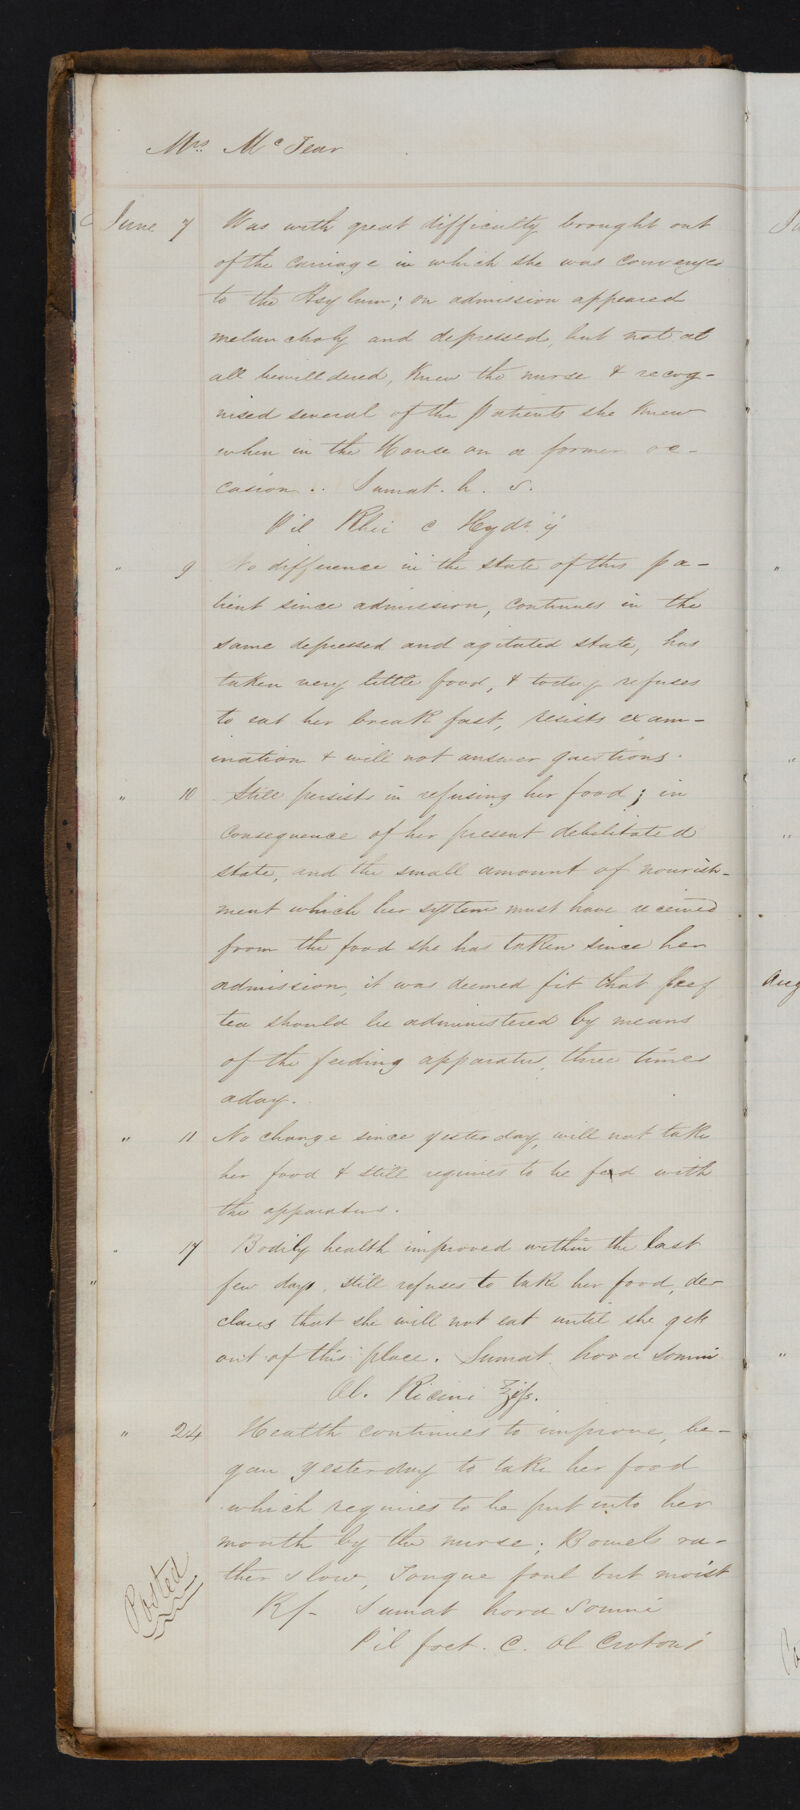 Mrs. McTear
June 7 Was with great difficulty brought out
of the carriage in which she was conveyed
to the Asylum; on admission appeared
melancholy and depressed, but not at
all bewilldered, knew the nurse & recog-
nised several of the patients she knew
when in the House on a former oc-
casion.. Sumat. h. s.
Pil Rhei c Hydr. ij
" 9 No difference in the state of this pa-
tient since admission, continues in the
same depressed and agitated state, has
taken very little food, & today refuses
to eat her breakfast, resists exam-
ination & will not answer questions.
" 10 Still persists in refusing her food; in
consequence of her present debilitated
state, and the small amount of nourish-
ment which her system must have received
from the food she has taken since her
admission, it was deemed fit that beef
tea should be administered by means
of the feeding apparatus, three times
aday.
" 11 No change since yesterday, will not take
her food & still requires to be fed with
the apparatus.
" 17 Bodily health improved within the last
few days, still refuses to take her food, de-
clares that she will not eat until she gets
out of this place. Sumat. hora somni
Ol. Ricini ℥jſs.
" 24 Health continues to improve, be-
gan yesterday to take her food
which requires to be put into her
mouth by the nurse; Bowels ra-
ther slow, Tongue foul but moist
Sumat hora somni
Pil foet. c. Ol Crotonis
Posted
Aug